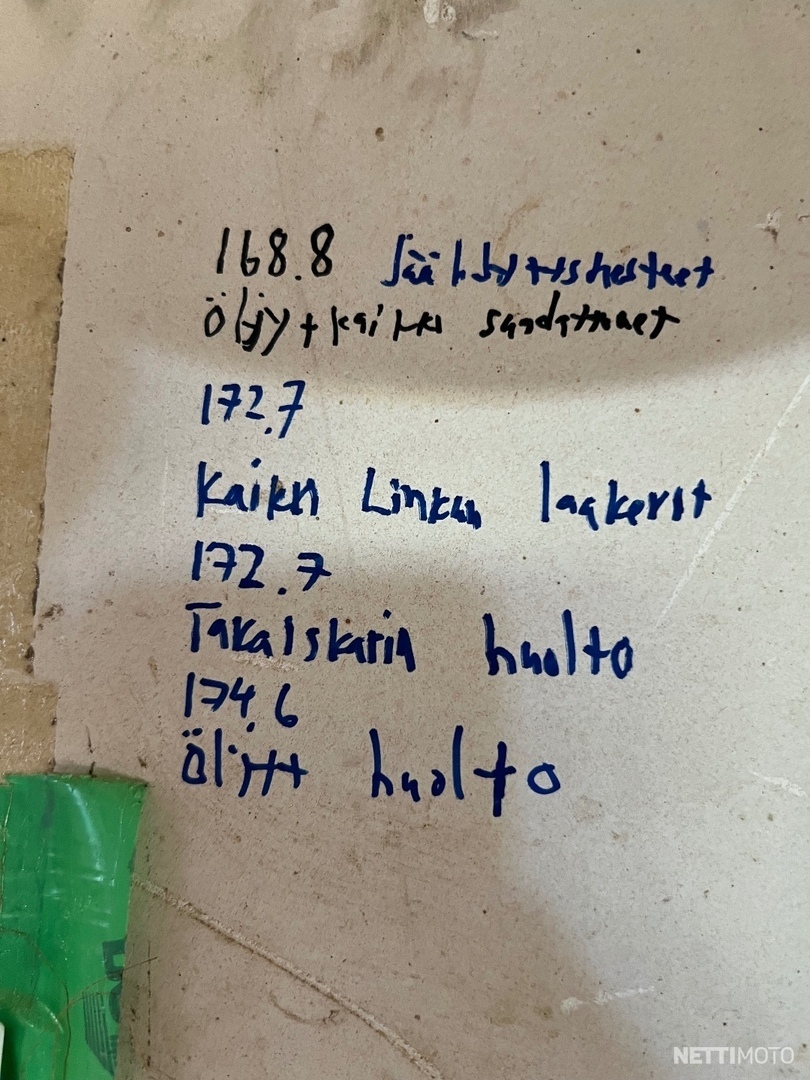 168.8 Jäähdytysnesteet
Öljy + kaikki suodattimet
172.7
Kaikki Linkun laakerit
172.7
Takaiskarin huolto
174.6
Öljyt huolto
NETTIMOTO